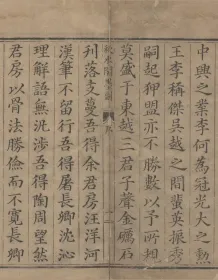 中興之業李何為冠光大之勲
王李稱傑吳越之間英振秀
嗣起狎盟亦不勝數以予所
莫盛于東越二君子金礪石
列落支蔓吾得余君房汪洋河
漢筆不留行吾得屠長卿沈
理解語無涉吾得陶周望然
君房以骨法勝儉而不寬長卿